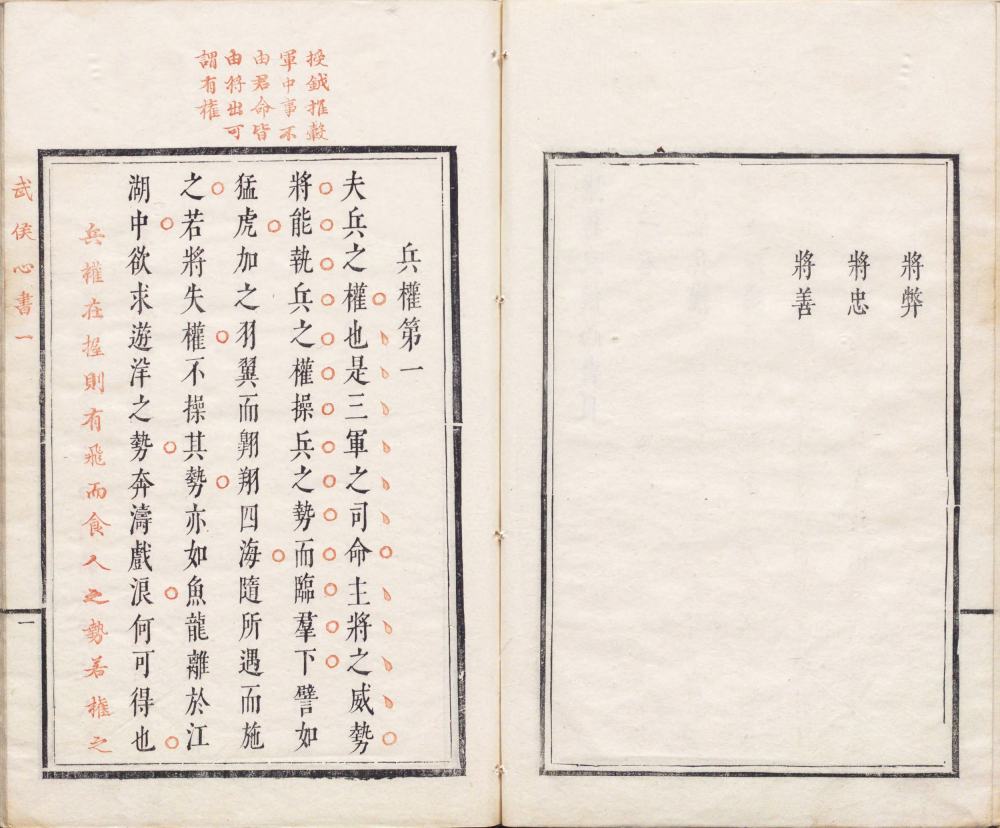 將弊
將忠
將善
授鉞推轂
軍中事不
由君命皆
由將出可
謂有權
兵權第一
夫兵之權也是三軍之司命主將之威勢
將能執兵之權操兵之勢而臨羣下譬如
猛虎加之羽翼而翱翔四海隨所遇而施
之若將失權不操其勢亦如魚龍離於江
湖中欲求遊洋之勢奔濤戲浪何可得也
兵權在握則有飛而食人之勢若權之
武侯心書一
一